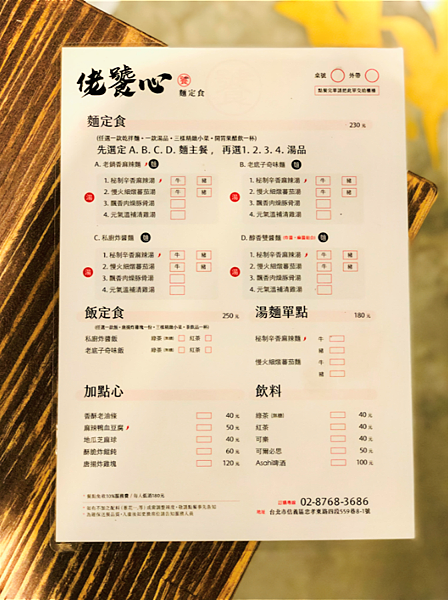 佬饕心 饕 麵定食
桌號 外帶
點餐完單請把此單交給櫃檯
麵定食 230 元
(任選一款乾拌麵+一款湯品+三樣精緻小菜+開胃果醋飲一杯)
先選定 A. B. C. D. 麵主餐 , 再選1. 2. 3. 4. 湯品
A. 老鍋香麻辣麵 麵
湯
1. 秘制辛香麻辣湯 牛 豬
2. 慢火細熬蕃茄湯 牛 豬
3. 飄香肉燥豚骨湯
4. 元氣溫補清雞湯
B. 老底子奇味麵 麵
湯
1. 秘制辛香麻辣湯 牛 豬
2. 慢火細熬蕃茄湯 牛 豬
3. 飄香肉燥豚骨湯
4. 元氣溫補清雞湯
C. 私廚炸醬麵 麵
湯
1. 秘制辛香麻辣湯 牛 豬
2. 慢火細熬蕃茄湯 牛 豬
3. 飄香肉燥豚骨湯
4. 元氣溫補清雞湯
D. 醇香雙醬麵 麵
湯
1. 秘制辛香麻辣湯 牛 豬
2. 慢火細熬蕃茄湯 牛 豬
3. 飄香肉燥豚骨湯
4. 元氣溫補清雞湯
飯定食 250 元
私廚炸醬飯 綠茶 (無糖) 紅茶
老底子奇味飯 綠茶 (無糖) 紅茶
湯麵單點 180 元
秘制辛香麻辣麵 牛
豬
慢火細熬蕃茄麵 牛
豬
加點心
香酥老油條 40 元
麻辣鴨血豆腐 50 元
地瓜芝麻球 40 元
酥脆炸餛飩 60 元
唐揚炸雞塊 120 元
飲料
綠茶 (無糖) 40 元
紅茶 40 元
可樂 40 元
可爾必思 50 元
Asahi啤酒 100 元
*餐點免收10%服務費 / 每人低消180元
訂購專線 02-8768-3686
地址 台北市信義區忠孝東路四段559巷8-1號